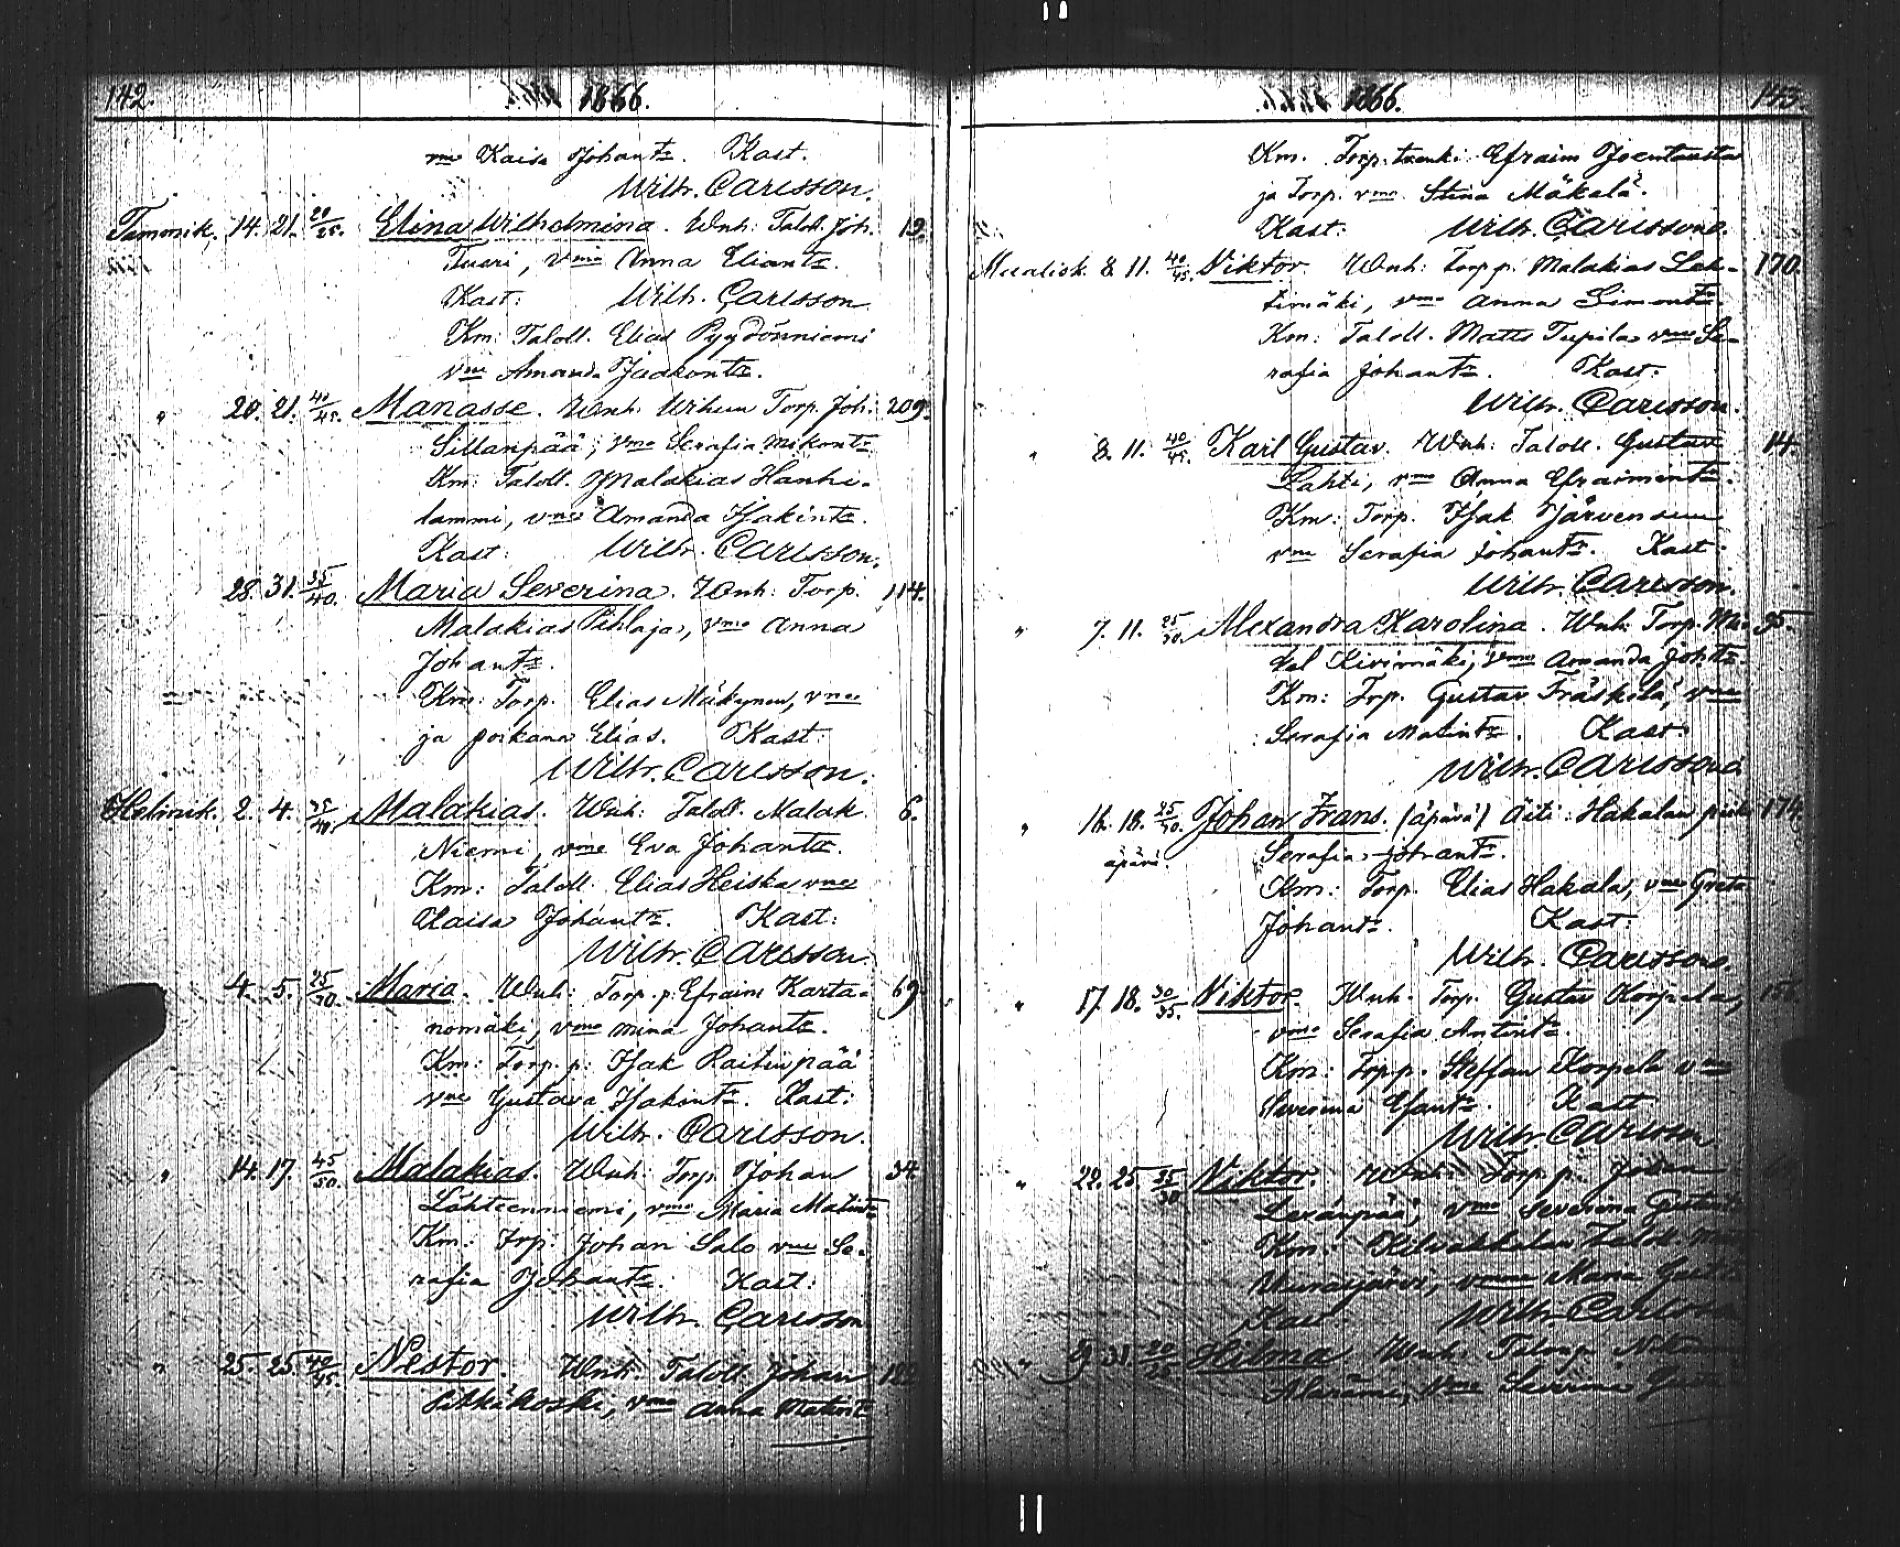 142. 1866.
vmo Kaisa Johantr. Kast.
Wilh. Carlsson.
Tammik. 14. 21. 20/25. Elina Wilhelmina. Wnh: Taloll. Joh. 12.
Tuuri, vmo Anna Eliantr.
Kast: Wilh. Carlsson
Km: Taloll. Elias Pyydönniemi
vmo Amanda Jaakontr.
" 20. 21. 40/45. Manasse. Wnh: Torp. Joh. 209.
Sillanpää, vmo Serafia Mikontr
Km: Taloll. Malakias Hanhi-
lammi, vmo Amanda Isakintr.
Kast: Wilh. Carlsson.
28. 31. 35/40. Maria Severina. Wnh: Torp. 114.
Malakias Pihlaja, vmo Anna
Johantr.
Km: Torp. Elias Mäkynen, vmo
ja poikana Elias. Kast:
Wilh. Carlsson.
Helmik. 2. 4. Malakias. Wnh: Taloll. Malak 6.
Niemi, vmo Eva Johantr.
Km: Taloll. Elias Heiska vmo
Kaisa Johantr. Kast:
Wilh. Carlsson
4. 5. 25/30. Maria. Wnh: Torp. p. Efraim Karta- 69
nomäki, vmo Mina Johantr.
Km: Torp. p: Isak Raitinpää
vmo Gustava Isakintr. Kast:
Wilh. Carlsson.
" 14. 17. 45/50. Malakias. Wnh: Torp. Johan 34.
Lähteenniemi, vmo Maria Matintr
Km: Trp: Johan Salo vmo Se-
rafia Johantr. Kast:
Wilh. Carlsson
" 25. 25. 40/45. Nestor. Wnh: Taloll. Johan
Pitkäkoski, vmo Anna Matintr
1866. 143.
Km. Torp. trenki Efraim Joentausta
ja Torp. vmo Stina Mäkelä.
Kast: Wilh. Carlsson.
Maalisk. 8. 11. 40/45. Viktor. Wnh: Torp p. Malakias Leh- 170.
timäki, vmo Anna Simontr.
Km: Taloll. Matts Tupila vmo Se-
rafia Johantr. Kast:
Wilh. Carlsson.
" 8. 11. 40/45. Karl Gustav. Wnh: Taloll. Gustav 14.
Lahti, vmo Anna Efraimintr.
Km: Torp. Isak Järvensuu
vmo Serafia Johantr. Kast:
Wilh. Carlsson.
" 7. 11. 25/30. Alexandra Karolina. Wnh: Torp. Mi- 95.
kal Kivimäki, vmo Amanda Johtr.
Km: Trp. Gustav Fräskilä, vmo
Serafia Matintr. Kast:
Wilh. Carlsson
" 16. 18. 25/30. Johan Frans. (äpärä) Äiti: Hakalan piik 174.
äpärä. Serafia Johantr.
Km: Torp. Elias Hakala, vmo Greta
Johantr. Kast:
Wilh. Carlsson.
" 17. 18. 30/35. Viktor. Wnh. Torp. Gustav Korpela,
vmo Serafia Antintr.
Km: Trp p. Steffan Korpela vmo
Severina Kast
Wilh. Carlsson
" 22. 25. 25/30 Viktor. Wnh: Torp p. Johan
vmo Severina
Km: Taloll.
vmo Maria
Kast Wilh. Carlsson
" 29. 31. 20/25 Hilma. Wnh:
vmo